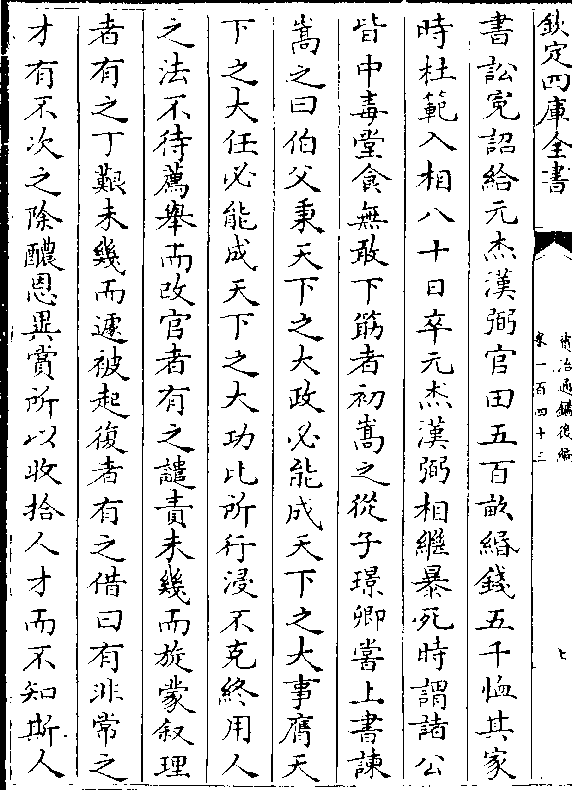 欽定四庫全書
資治通鑑後編
卷一百四十三
七
書訟冤詔給元杰漢弼官田五百畝緡錢五千恤其家
時杜範入相八十日卒元杰漢弼相繼暴死時謂諸公
皆中毒堂食無敢下筯者初嵩之從子璟卿嘗上書諫
嵩之曰伯父秉天下之大政必能成天下之大事膺天
下之大任必能成天下之大功比所行浸不克終用人
之法不待薦舉而改官者有之譴責未幾而旋蒙叙理
者有之丁艱未幾而遽被起復者有之借曰有非常之
才有不次之除醲恩異賞所以收拾人才而不知斯人